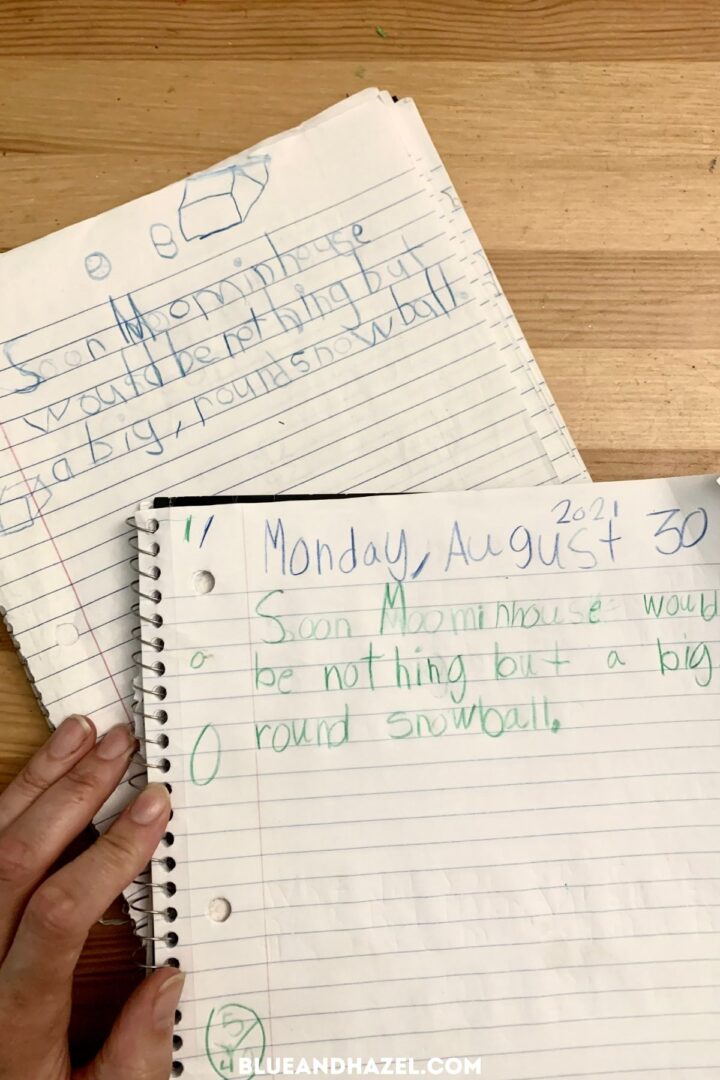 Soon Moominhouse
would be nothing but
a big, round snowball.
2021
Monday, August 30
Soon Moominhouse would
be nothing but a big
round snowball.
5/
BLUEANDHAZEL.COM